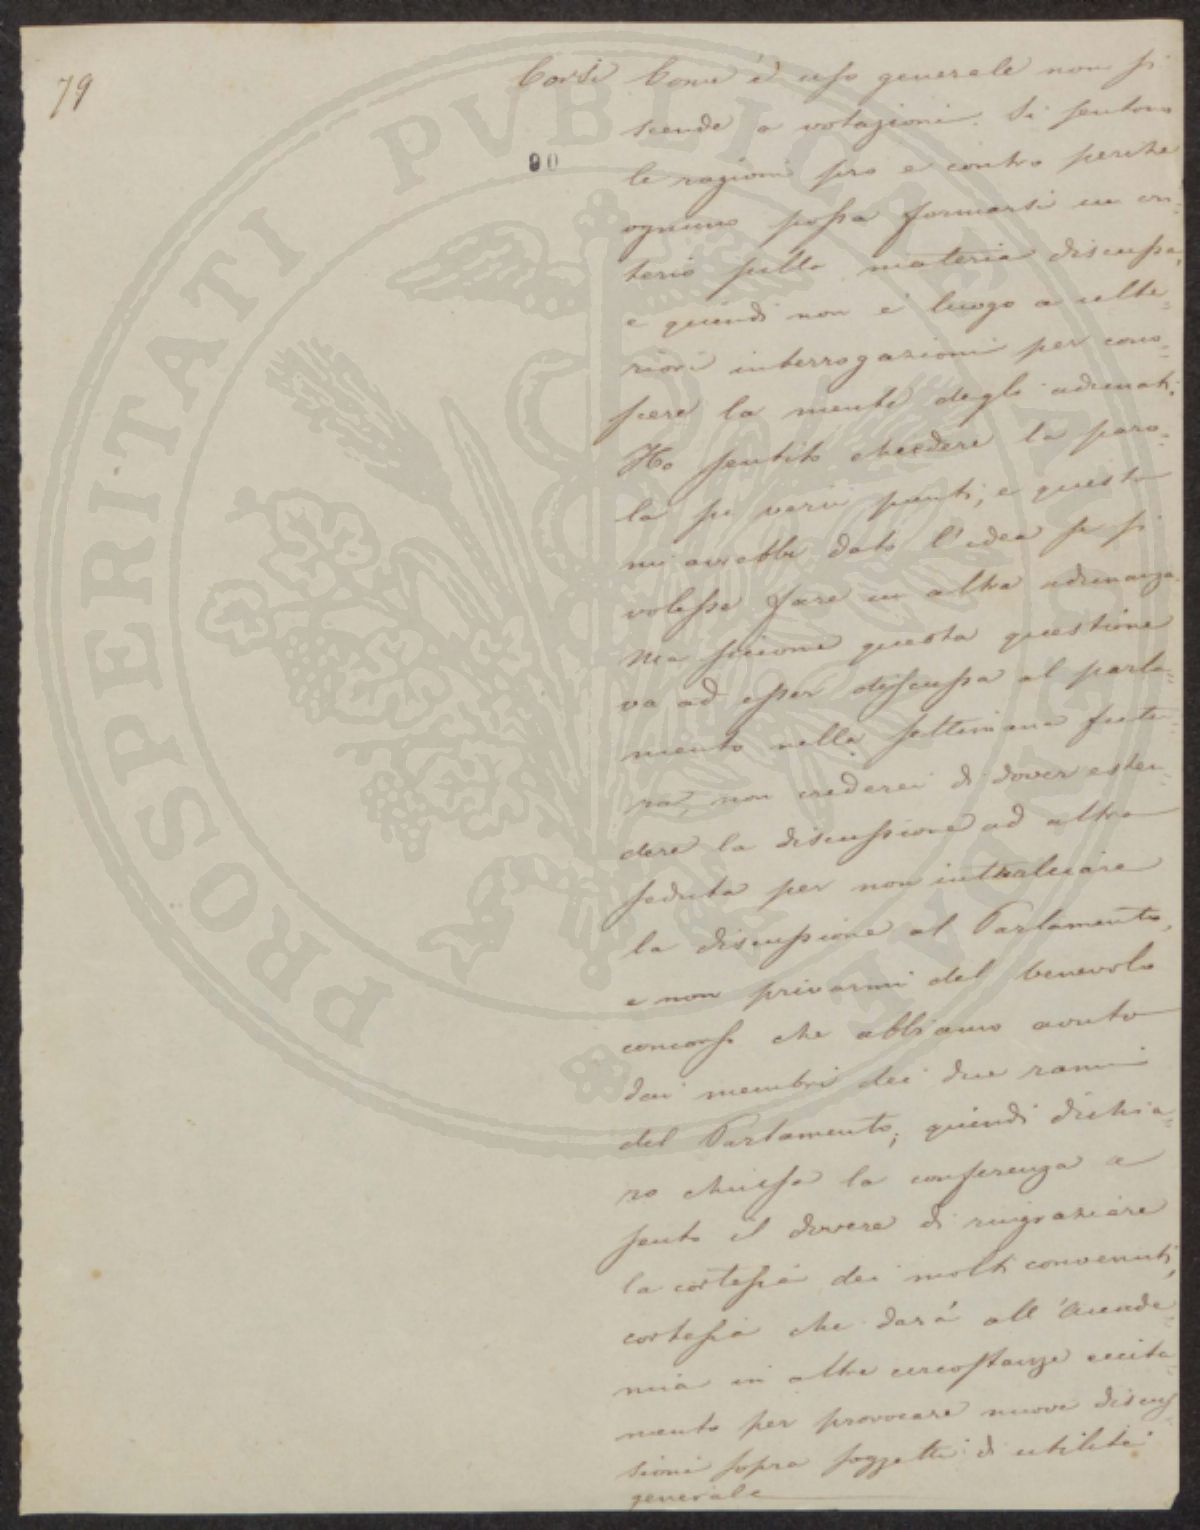 79
90
Corsi Come è uso generale non si
scende a votazioni. Si sentono
le ragioni pro e contro perche
ognuno possa formarsi un cri-
terio sulla materia discussa,
e quindi non è luogo a ulte-
riori interrogazioni per cono-
scere la mente degli adunati.
Ho sentito chiedere la paro-
la su varii punti, e questo
mi avrebbe dato l'idea se si
volesse fare un altra adunanza.
Ma siccome questa questione
va ad esser discussa al parla-
mento nella settimana futu-
ra, non crederei di dover esten-
dere la discussione ad altra
seduta per non intralciare
la discussione al Parlamento,
e non privarmi del benevolo
concorso che abbiamo avuto
dai membri dei due rami
del Parlamento; quindi dichia-
ro chiusa la conferenza e
sento il dovere di ringraziare
la cortesia dei molti convenuti,
cortesia che darà all'Accade-
mia in altre circostanze eccita-
mento per provocare nuove discus-
sioni sopra soggetti di utilità
generale
PROSPERITATI PVBLICAE AVGENDAE